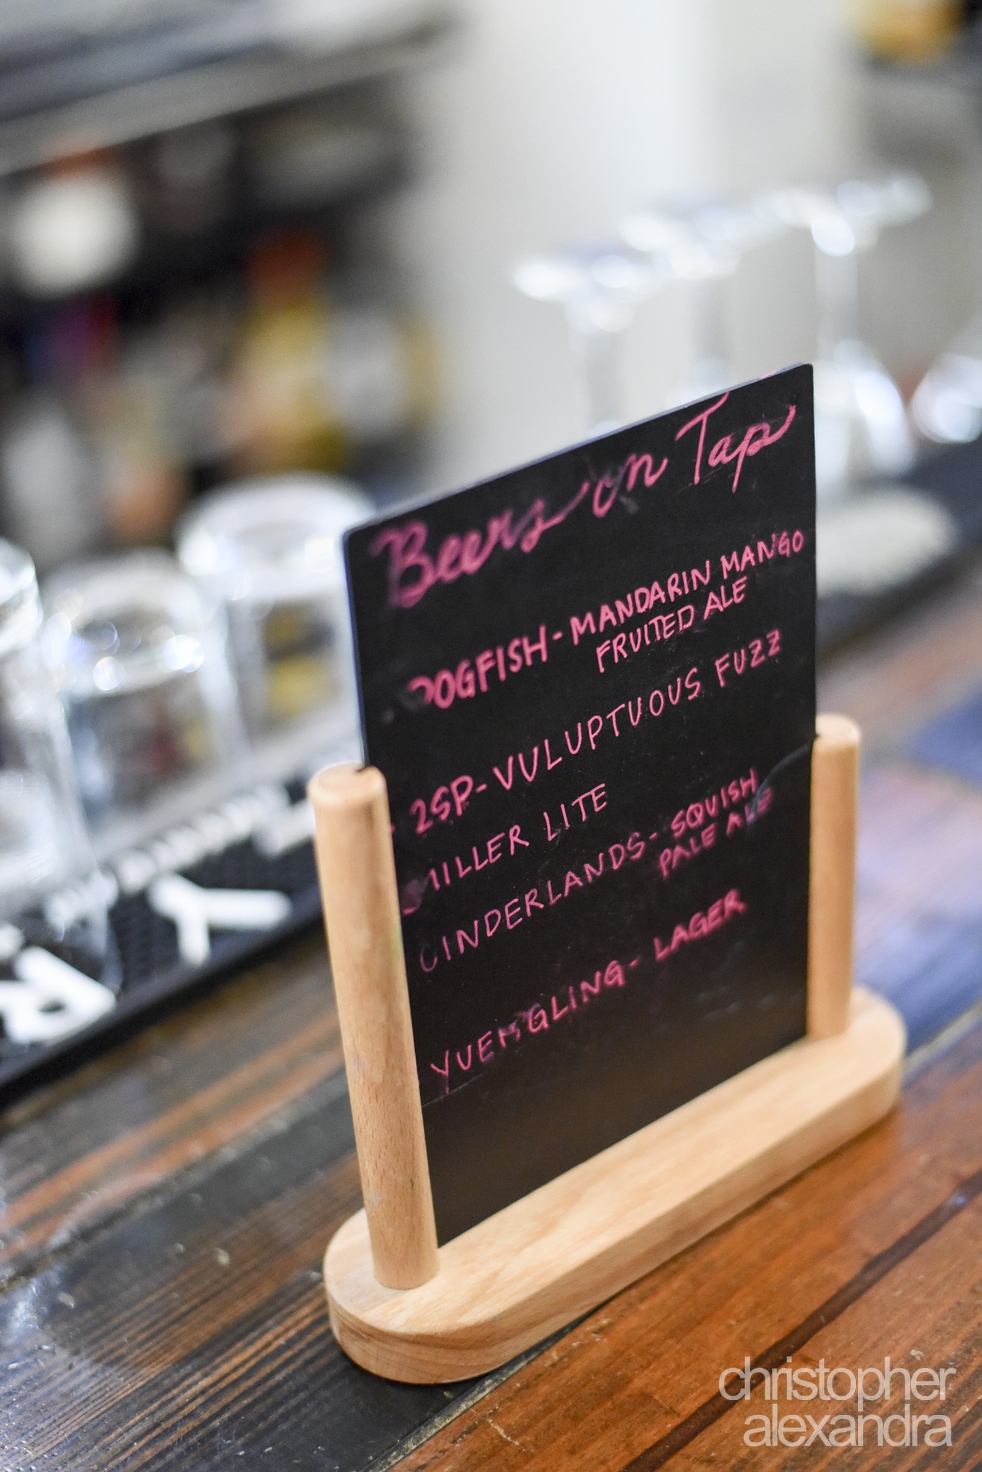 Beers on Tap
DOGFISH - MANDARIN MANGO
FRUITED ALE
2SP - VULUPTUOUS FUZZ
MILLER LITE
CINDERLANDS - SQUISH
PALE ALE
YUENGLING - LAGER
christopher
alexandra